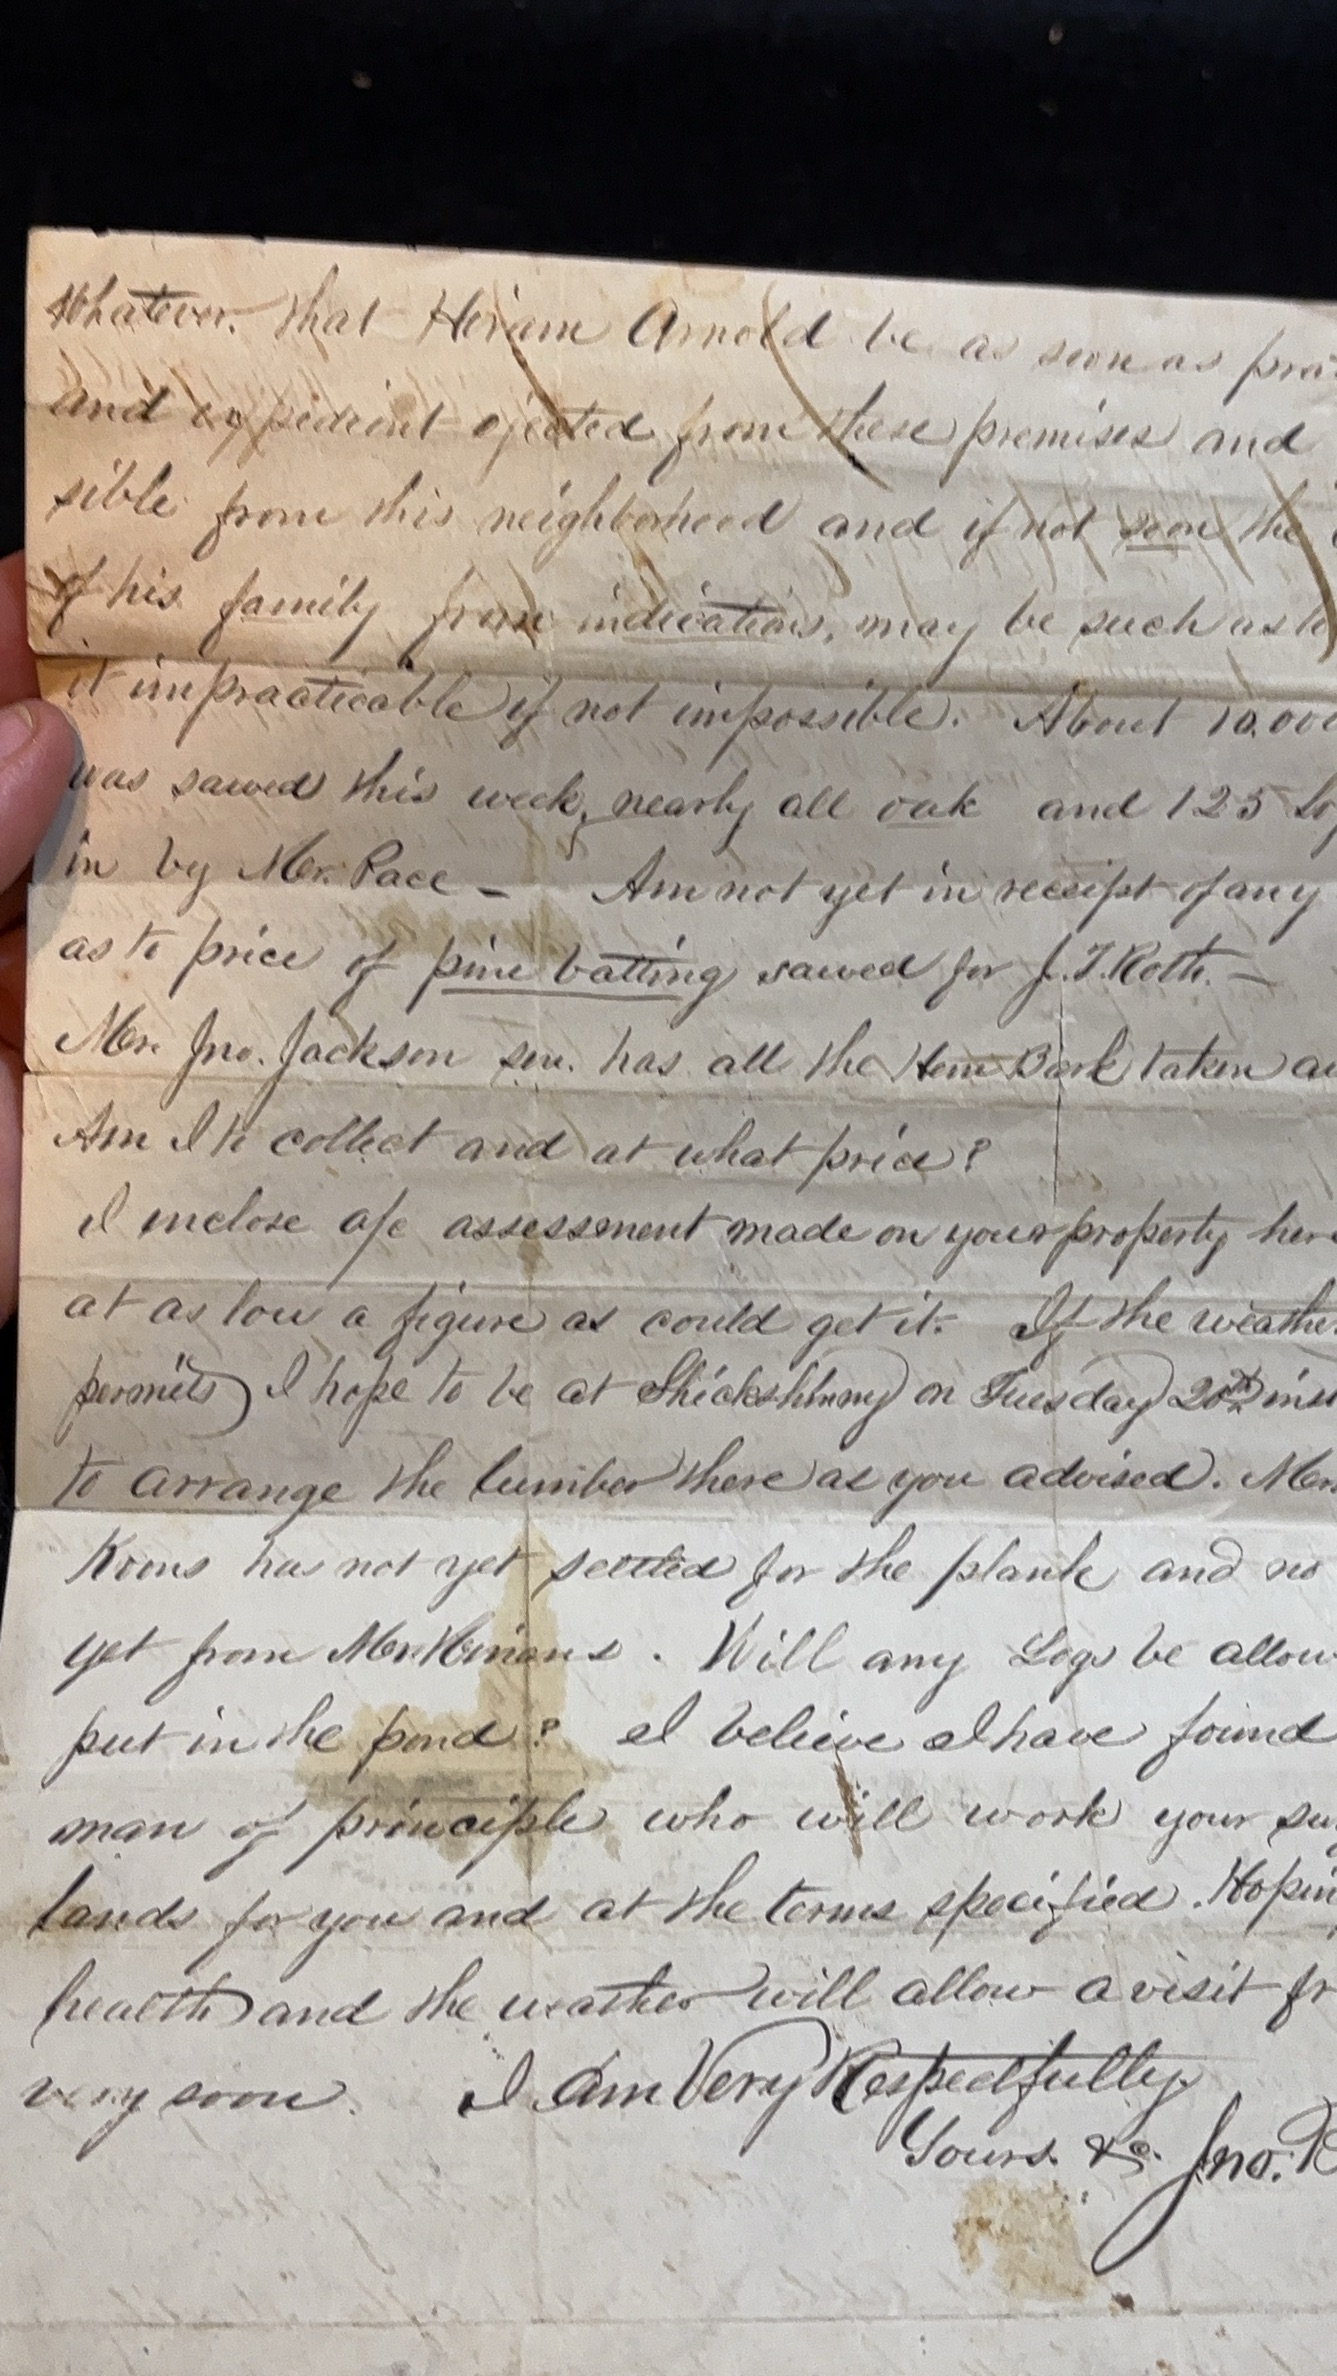 Whatever. that Hiram Arnold be as soon as pra
and expedient ejected from these premises and
sible from this neighborhood and if not soon the
of his family from indications, may be such as to
it impracticable if not impossible. About 10.000
was sawed this week, nearly all oak and 125 Log
in by Mr. Pace - Am not yet in receipt of any
as to price of pine batting sawed for J. T. Roth. -
Mr. Jno. Jackson sen. has all the Hem Bark taken
Am I to collect and at what price?
I inclose a/c assessment made on your property here
at as low a figure as could get it. If the weather
permits I hope to be at Shickshinny on Tuesday 20th inst
to arrange the lumber there as you advised. Mr.
Koons has not yet settled for the plank and no
yet from Mr. . Will any Logs be allow
put in the pond? I believe I have found
man of principle who will work your
lands for you and at the terms specified. Hopin
health and the weather will allow a visit fr
very soon. I Am Very Respectfully.
Yours. &c. Jno.